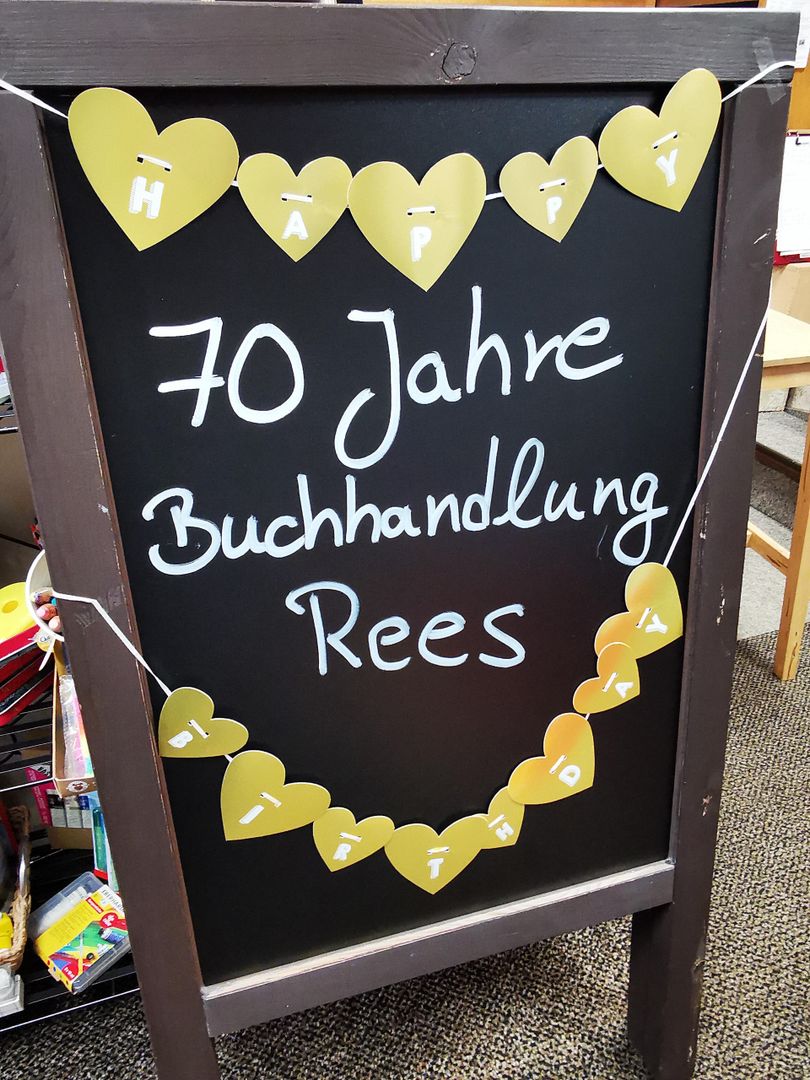 HAPPY
70 Jahre
Buchhandlung
Rees
BIRTHDAY